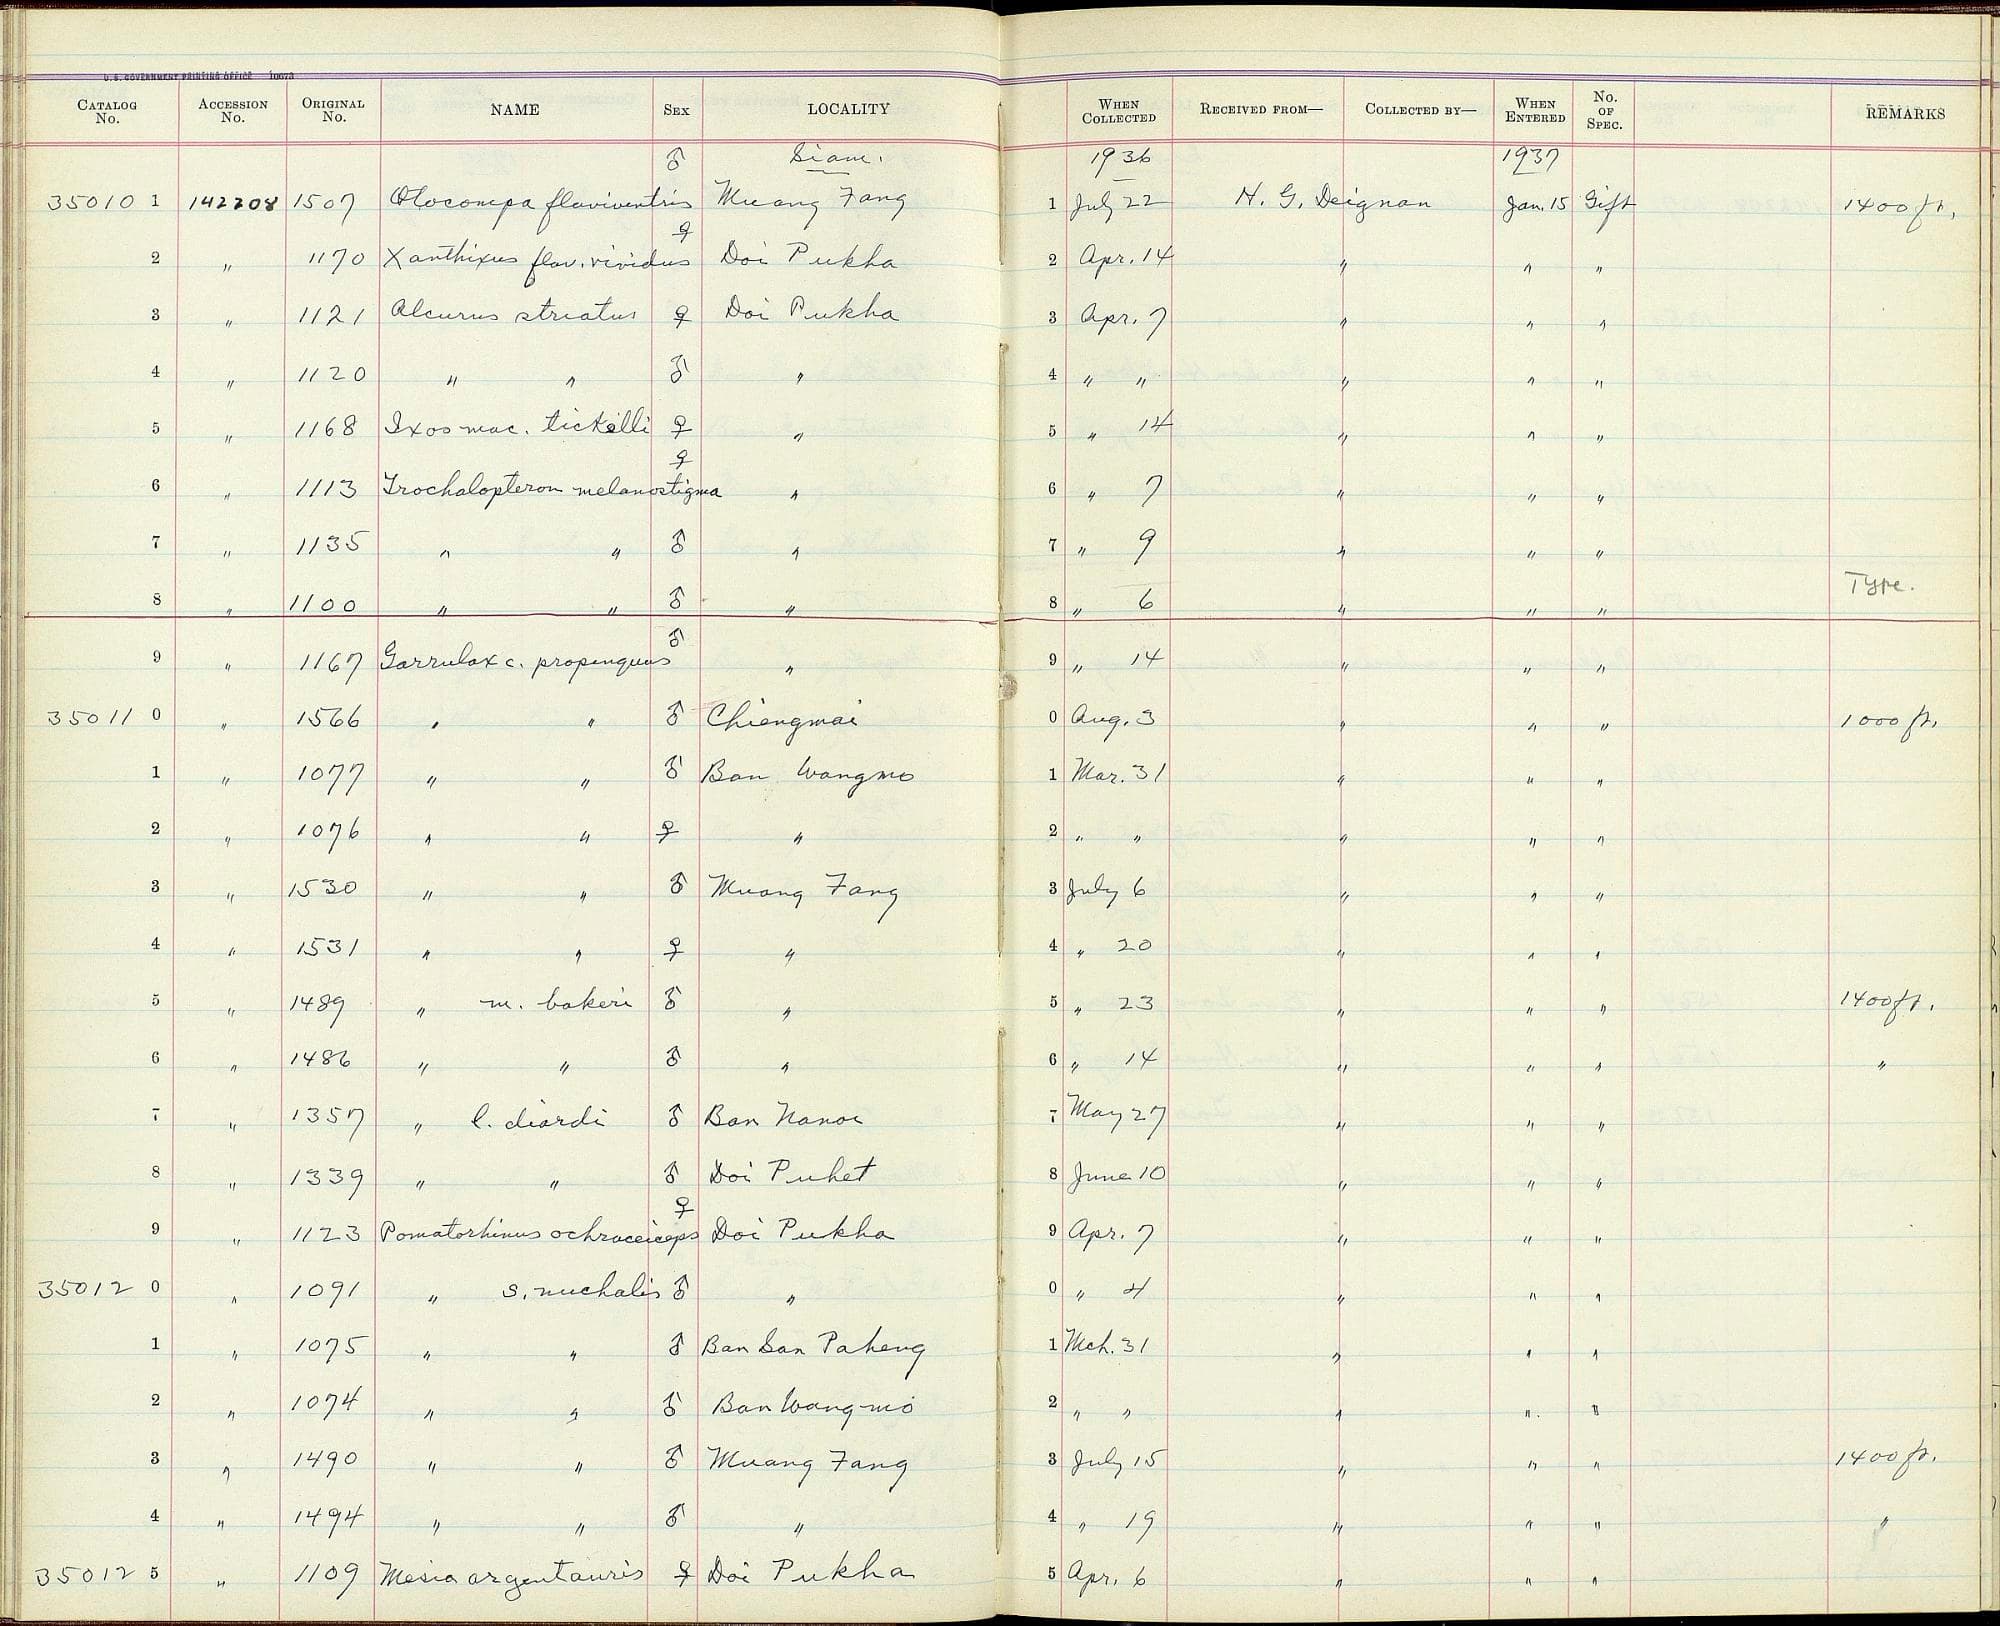 U.S. GOVERNMENT PRINTING OFFICE 10673
CATALOG No. ACCESSION No. ORIGINAL No. NAME SEX LOCALITY WHEN COLLECTED RECEIVED FROM— COLLECTED BY— WHEN ENTERED No. OF SPEC. REMARKS
♂ Siam. 1936 1937
35010 1 142208 1507 Otocompa flaviventris Muang Fang 1 July 22 H. G. Deignan Jan. 15 Gift 1400 ft.
♀
2 " 1170 Xanthixus flav. vividus Doi Pukha 2 Apr. 14 " " "
3 " 1121 Alcurus striatus ♀ Doi Pukha 3 Apr. 7 " " "
4 " 1120 " " ♂ " 4 " " " " "
5 " 1168 Ixos mac. tickelli ♀ " 5 " 14 " " "
♀
6 " 1113 Trochalopteron melanostigma " 6 " 7 " " "
7 " 1135 " " ♂ " 7 " 9 " " "
8 " 1100 " " ♂ " 8 " 6 " " " Type.
♂
9 " 1167 Garrulax c. propinquus " 9 " 14 " " "
35011 0 " 1566 " " ♂ Chiengmai 0 Aug. 3 " " " 1000 ft.
1 " 1077 " " ♂ Ban Wangmo 1 Mar. 31 " " "
2 " 1076 " " ♀ " 2 " " " " "
3 " 1530 " " ♂ Muang Fang 3 July 6 " " "
4 " 1531 " " ♀ " 4 " 20 " " "
5 " 1489 " m. bakeri ♂ " 5 " 23 " " " 1400 ft.
6 " 1486 " " ♂ " 6 " 14 " " " "
7 " 1357 " l. diardi ♂ Ban Nanoi 7 May 27 " " "
8 " 1339 " " ♂ Doi Puhet 8 June 10 " " "
♀
9 " 1123 Pomatorhinus ochraceiceps Doi Pukha 9 Apr. 7 " " "
35012 0 " 1091 " s. nuchalis ♂ " 0 " 4 " " "
1 " 1075 " " ♂ Ban San Paheng 1 Mch. 31 " " "
2 " 1074 " " ♂ Ban Wang-mo 2 " " " " "
3 " 1490 " " ♂ Muang Fang 3 July 15 " " " 1400 ft.
4 " 1494 " " ♂ " 4 " 19 " " " "
35012 5 " 1109 Mesia argentauris ♀ Doi Pukha 5 Apr. 6 " " "